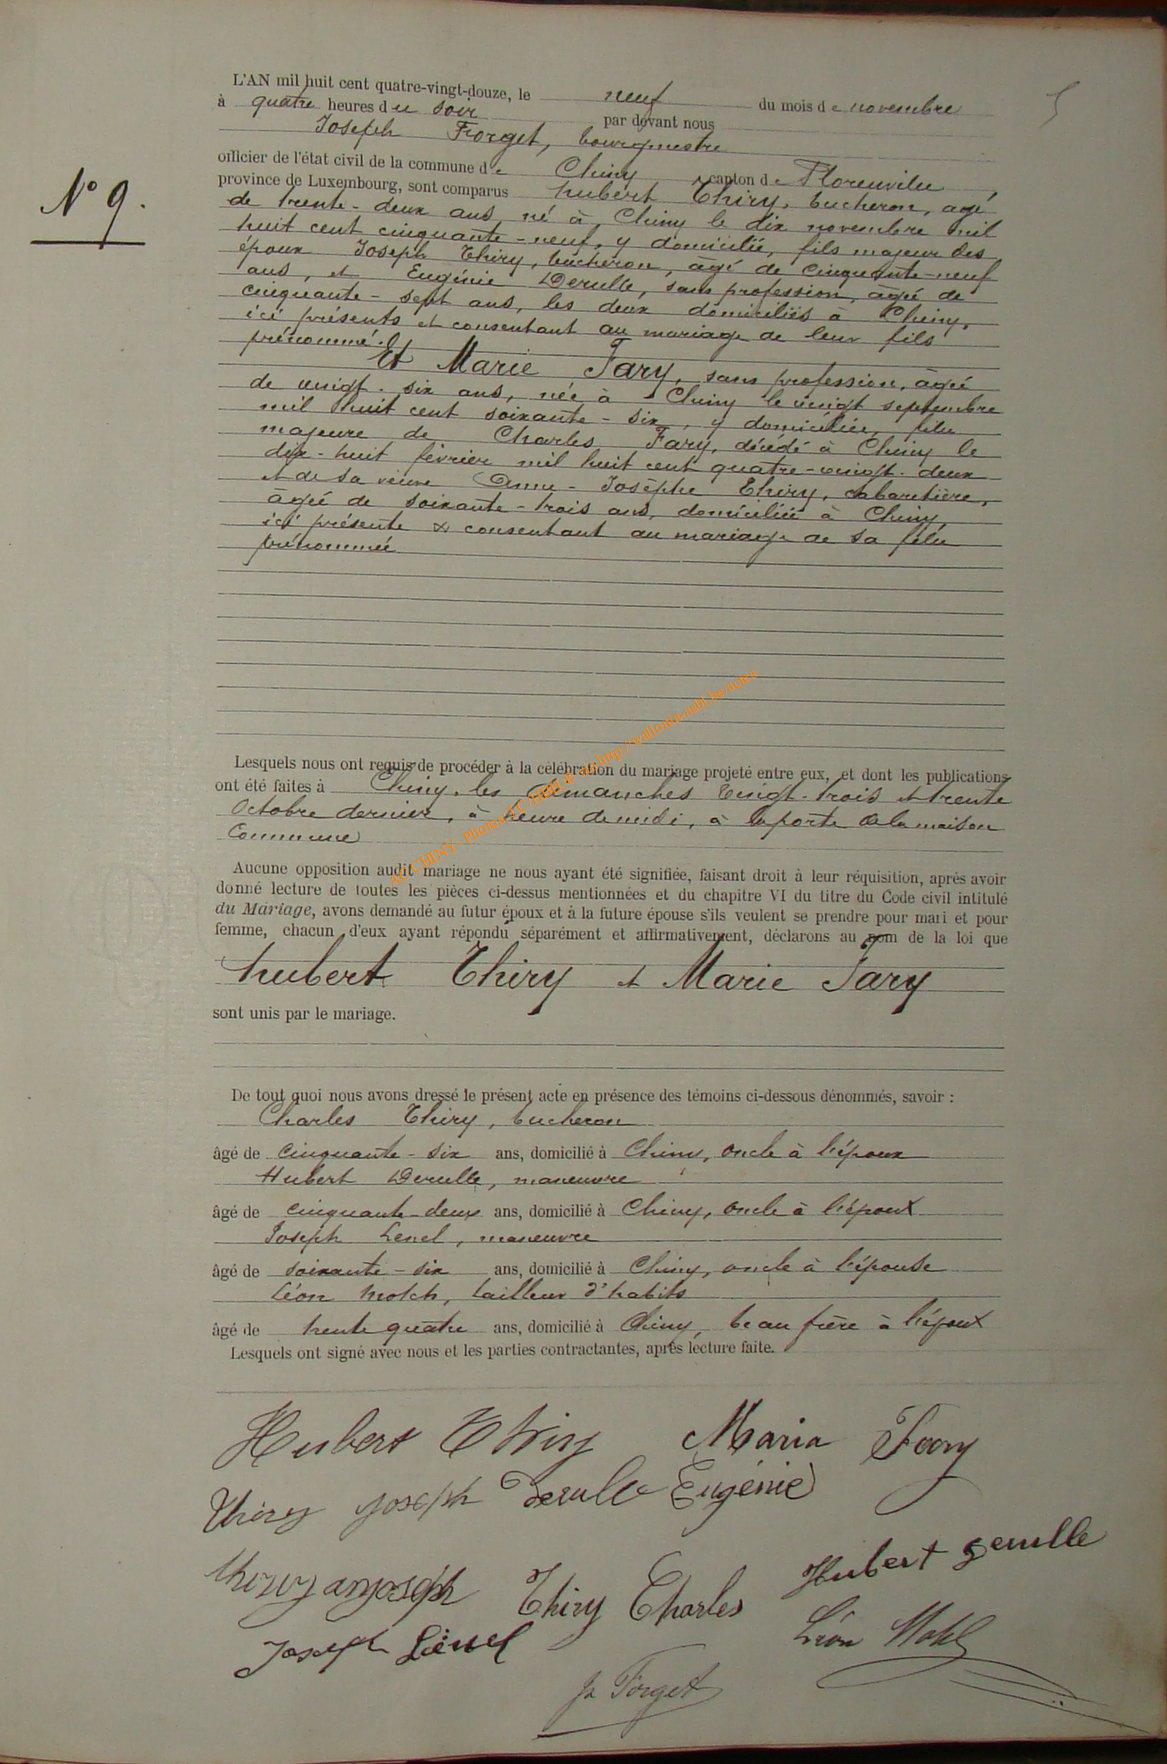 L'AN mil huit cent quatre-vingt-douze, le neuf du mois de novembre
à quatre heures du soir par devant nous
Joseph Forget, bourgmestre
officier de l'état civil de la commune de Chiny, canton de Florenville,
province de Luxembourg, sont comparus hubert Thiry, bucheron, agé
N° 9.
de trente-deux ans, né à Chiny le dix novembre mil
huit cent cinquante-neuf, y domicilié, fils majeur des
époux Joseph Thiry, bûcheron, âgé de cinquante-neuf
ans, et Eugénie Derulle, sans profession, âgée de
cinquante-sept ans, les deux domiciliés à Chiny,
ici présents et consentant au mariage de leur fils
prénommé.
Et Marie Fary, sans profession, âgée
de vingt-six ans, née à Chiny le vingt septembre
mil huit cent soixante-six, y domiciliée, fille
majeure de Charles Fary, décédé à Chiny le
dix-huit février mil huit cent quatre-vingt-deux
et de sa veuve Anne-Josèphe Thiry, cabaretière,
âgée de soixante-trois ans, domiciliée à Chiny,
ici présente & consentant au mariage de sa fille
prénommée
Lesquels nous ont requis de procéder à la célébration du mariage projeté entre eux, et dont les publications
ont été faites à Chiny, les dimanches vingt-trois et trente
Octobre dernier, à heure de midi, à la porte de la maison
Commune
Aucune opposition audit mariage ne nous ayant été signifiée, faisant droit à leur réquisition, après avoir
donné lecture de toutes les pièces ci-dessus mentionnées et du chapitre VI du titre du Code civil intitulé
du Mariage, avons demandé au futur époux et à la future épouse s'ils veulent se prendre pour mari et pour
femme, chacun d'eux ayant répondu séparément et affirmativement, déclarons au nom de la loi que
hubert Thiry et Marie Fary
sont unis par le mariage.
De tout quoi nous avons dressé le présent acte en présence des témoins ci-dessous dénommés, savoir :
Charles Thiry, bucheron
âgé de cinquante-six ans, domicilié à Chiny, oncle à l'époux
Hubert Derulle, manœuvre
âgé de cinquante-deux ans, domicilié à Chiny, oncle à l'époux
Joseph Lenel, manœuvre
âgé de soixante-six ans, domicilié à Chiny, oncle à l'épouse
Léon
tailleur d'habits
âgé de trente quatre ans, domicilié à Chiny, beau frère à l'époux
Lesquels ont signé avec nous et les parties contractantes, après lecture faite.
Hubert Thiry Maria Fary
Thiry Joseph Derulle Eugénie
Hubert Derulle
Thiry Charles
Joseph Lenel Léon
Js Forget